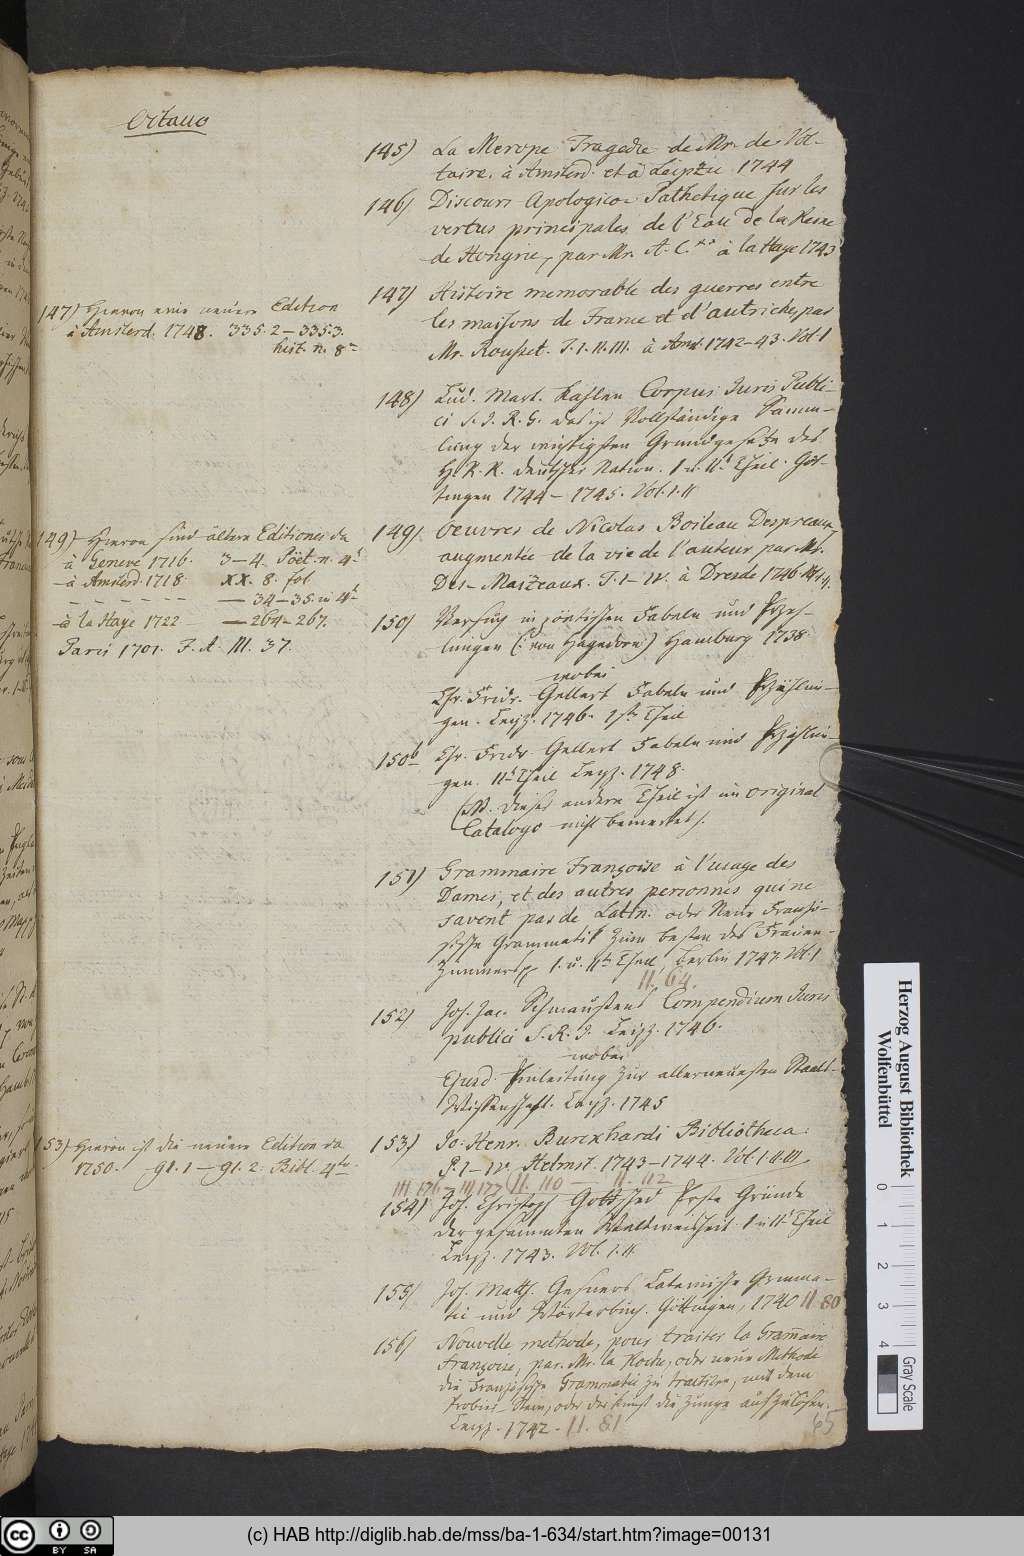 Octauo
145) La Merope Tragedie de Mr. de Vol-
taire. à Amsterd. et à Leipzic. 1744
146) Discours Apologico-Pathetique sur les
vertus principales de l'Eau de la Reine
de Hongrie, par Mr. A. C. à la Haye 1743
147) Hiervon eine neuere Edition
à Amsterd. 1748. 335.2 — 335.3.
hist. n. 8
147) Histoire memorable des guerres entre
les maisons de France et d'autriche, par
Mr. Rousset. T. I. II. III. à Ams. 1742–43. Vol 1
148) Lud. Mart. Kahlen Corpus Juris Publi-
ci S. I. R. G. das ist Vollständige Samm-
lung der wichtigsten Grundgesetze des
H. R. R. deutscher Nation. I u. II Theil. Göt-
tingen 1744 – 1745. Vol. I. II
149) Hiervon sind ältere Editiones da
à Geneve 1716. 3–4. Pöet. n. 4
à Amsterd. 1718 XX. 8. fol
– – – – – – — 34–35. in 4
à la Haye 1722 — 264–267.
Paris 1701. F. A. III. 37.
149) Oeuvres de Nicolas Boileau Despreaux
augmentée de la vie de l'auteur par Mr.
Des-Maizeaux. T. I–IV. à Dresde 1746.
150) Versuch in poetischen Fabeln und Erzeh-
lungen (: von Hagedorn :) Hamburg 1738
wobei
Chr. Fridr. Gellert Fabeln und Erzählun-
gen. Leipz. 1746. 1ster Theil
150b Chr. Fridr. Gellert Fabeln und Erzählun-
gen. II Theil Leipz. 1748.
(NB. dieser andere Theil ist im original
Catalogo nicht bemerket).
151) Grammaire Françoise à l'usage des
Dames, et des autres personnes qui ne
savent pas de Latin. oder Neue Franzö-
sische Grammatik zum besten des Frauen-
zimmers I. u. II Theil Berlin 1747. Vol. 1
II. 64.
152) Joh. Jac. Schmaussens Compendium Juris
publici S. R. I. Leipz. 1746.
wobei
Ejusd. Einleitung zur allerneuesten Staats-
Wissenschaft. Leipz. 1745
153) Hiervon ist die neuere Edition da
1750. gl. 1 — gl. 2. Bibl. 4to
153) Jo. Henr. Burckhardi Bibliotheca.
P. I–IV. Helmst. 1743–1744. Vol I. II. III
III. 176 – III. 177 II. 110 — II. 112
154) Joh. Christoph Gottsched Erste Gründe
der gesammten Weltweisheit. I u. II Theil
Leipz. 1743. Vol. I. II
155) Joh. Matth. Gesners Lateinische Gramma-
tic und Wörterbuch. Göttingen, 1740 II. 80
156) Nouvelle methode, pour traiter la Grammaire
Françoise, par Mr. la Roche, oder neue Methode
die Französische Grammatic zu tractiren, mit dem
oder der Kunst die Zunge aufzulösen.
Leipz. 1742. II. 81
65
Herzog August Bibliothek
Wolfenbüttel
0 1 2 3 4
Gray Scale
cc BY SA
(c) HAB http://diglib.hab.de/mss/ba-1-634/start.htm?image=00131